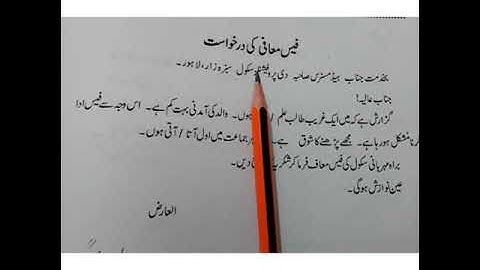 فیس معافی کی درخواست
بخدمت جناب ہیڈ مسٹرس صاحبہ دی پروفیشنل سکول سبزہ زار، لاہور۔
جناب عالیہ!
گزارش ہے کہ میں ایک غریب طالب علم / ہوں۔ والد کی آمدنی بہت کم ہے۔ اس وجہ سے فیس ادا
کرنا مشکل ہو رہا ہے۔ مجھے پڑھنے کا شوق ہے۔ جماعت میں اول آتا / آتی ہوں۔
براہ مہربانی سکول کی فیس معاف فرما کر شکریہ کا دیں۔
عین نوازش ہوگی۔
العارض